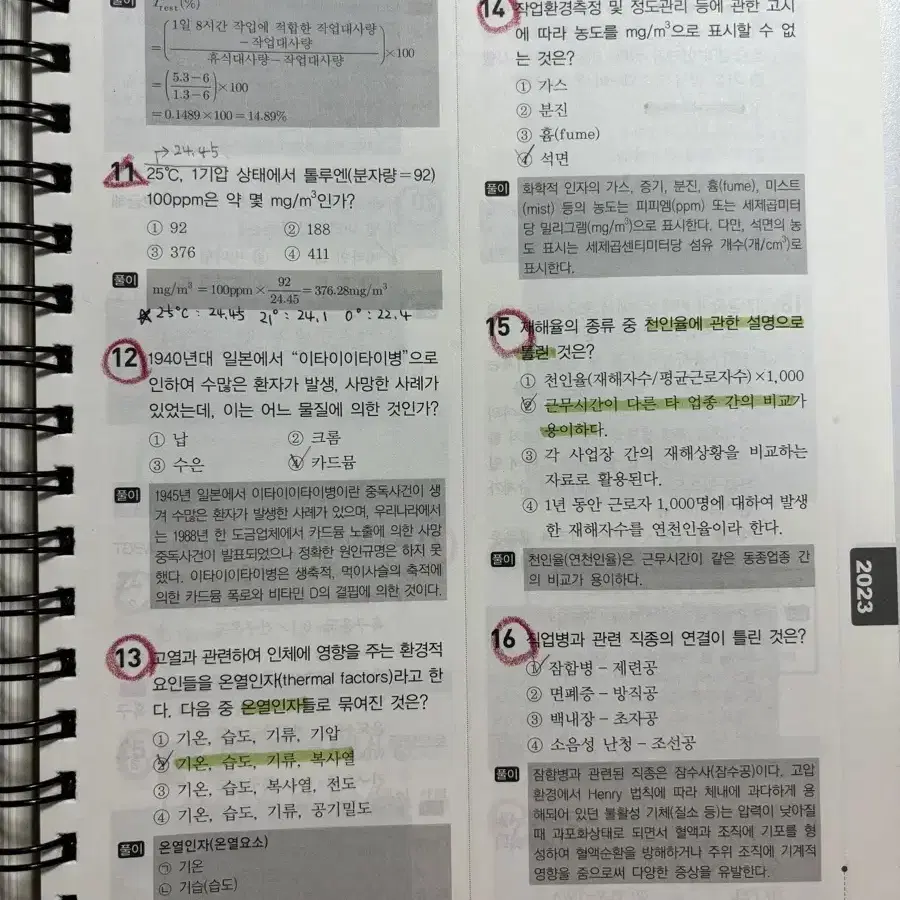 T_rest(%)
=(1일 8시간 작업에 적합한 작업대사량
-작업대사량
/휴식대사량-작업대사량)×100
=(5.3-6/1.3-6)×100
=0.1489×100=14.89%
→24.45
11 25℃, 1기압 상태에서 톨루엔(분자량=92)
100ppm은 약 몇 mg/m³인가?
① 92 ② 188
③ 376 ④ 411
풀이 mg/m³=100ppm×92/24.45=376.28mg/m³
25℃ : 24.45 21° : 24.1 0° : 22.4
12 1940년대 일본에서 "이타이이타이병"으로
인하여 수많은 환자가 발생, 사망한 사례가
있었는데, 이는 어느 물질에 의한 것인가?
① 납 ② 크롬
③ 수은 ④ 카드뮴
풀이 1945년 일본에서 이타이이타이병이란 중독사건이 생
겨 수많은 환자가 발생한 사례가 있으며, 우리나라에서
는 1988년 한 도금업체에서 카드뮴 노출에 의한 사망
중독사건이 발표되었으나 정확한 원인규명은 하지 못
했다. 이타이이타이병은 생축적, 먹이사슬의 축적에
의한 카드뮴 폭로와 비타민 D의 결핍에 의한 것이다.
13 고열과 관련하여 인체에 영향을 주는 환경적
요인들을 온열인자(thermal factors)라고 한
다. 다음 중 온열인자들로 묶여진 것은?
① 기온, 습도, 기류, 기압
② 기온, 습도, 기류, 복사열
③ 기온, 습도, 복사열, 전도
④ 기온, 습도, 기류, 공기밀도
풀이 온열인자(온열요소)
㉠ 기온
㉡ 기습(습도)
14 작업환경측정 및 정도관리 등에 관한 고시
에 따라 농도를 mg/m³으로 표시할 수 없
는 것은?
① 가스
② 분진
③ 흄(fume)
④ 석면
풀이 화학적 인자의 가스, 증기, 분진, 흄(fume), 미스트
(mist) 등의 농도는 피피엠(ppm) 또는 세제곱미터
당 밀리그램(mg/m³)으로 표시한다. 다만, 석면의 농
도 표시는 세제곱센티미터당 섬유 개수(개/cm³)로
표시한다.
15 재해율의 종류 중 천인율에 관한 설명으로
틀린 것은?
① 천인율(재해자수/평균근로자수)×1,000
② 근무시간이 다른 타 업종 간의 비교가
용이하다.
③ 각 사업장 간의 재해상황을 비교하는
자료로 활용된다.
④ 1년 동안 근로자 1,000명에 대하여 발생
한 재해자수를 연천인율이라 한다.
풀이 천인율(연천인율)은 근무시간이 같은 동종업종 간
의 비교가 용이하다.
2023
16 직업병과 관련 직종의 연결이 틀린 것은?
① 잠함병 – 제련공
② 면폐증 – 방직공
③ 백내장 – 초자공
④ 소음성 난청 – 조선공
풀이 잠함병과 관련된 직종은 잠수사(잠수공)이다. 고압
환경에서 Henry 법칙에 따라 체내에 과다하게 용
해되어 있던 불활성 기체(질소 등)는 압력이 낮아질
때 과포화상태로 되면서 혈액과 조직에 기포를 형
성하여 혈액순환을 방해하거나 주위 조직에 기계적
영향을 줌으로써 다양한 증상을 유발한다.